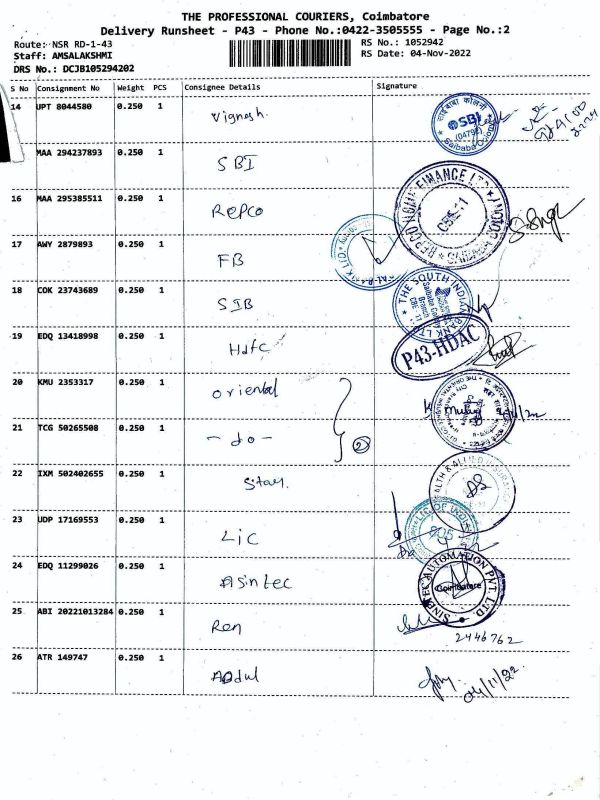 THE PROFESSIONAL COURIERS, Coimbatore
Delivery Runsheet - P43 - Phone No.:0422-3505555 - Page No.:2
Route: NSR RD-1-43
RS No.: 1052942
Staff: AMSALAKSHMI
RS Date: 04-Nov-2022
DRS No.: DCJB105294202
S No Consignment No Weight PCS Consignee Details Signature
14 UPT 8044580 0.250 1 Vignesh.
SBI
(04796)
Saibaba Colony
MAA 294237893 0.250 1 SBI
16 MAA 295385511 0.250 1 Repco
REPCO HOME FINANCE LTD
17 AWY 2879893 0.250 1 FB
18 COK 23743689 0.250 1 SIB
THE SOUTH INDIAN BANK LTD
19 EDQ 13418998 0.250 1 Hdfc
P43-HDAC
20 KMU 2353317 0.250 1 oriental
21 TCG 50265508 0.250 1 - do -
2
22 IXM 502402655 0.250 1 Star.
HEALTH & ALLIED INSURANCE
23 UDP 17169553 0.250 1 LIC
LIC OF INDIA
24 EDQ 11299026 0.250 1 Asintec
AUTOMATION PVT. LTD.
Coimbatore
25 ABI 20221013284 0.250 1 Ren
2446762
26 ATR 149747 0.250 1 Abdul
04/11/22